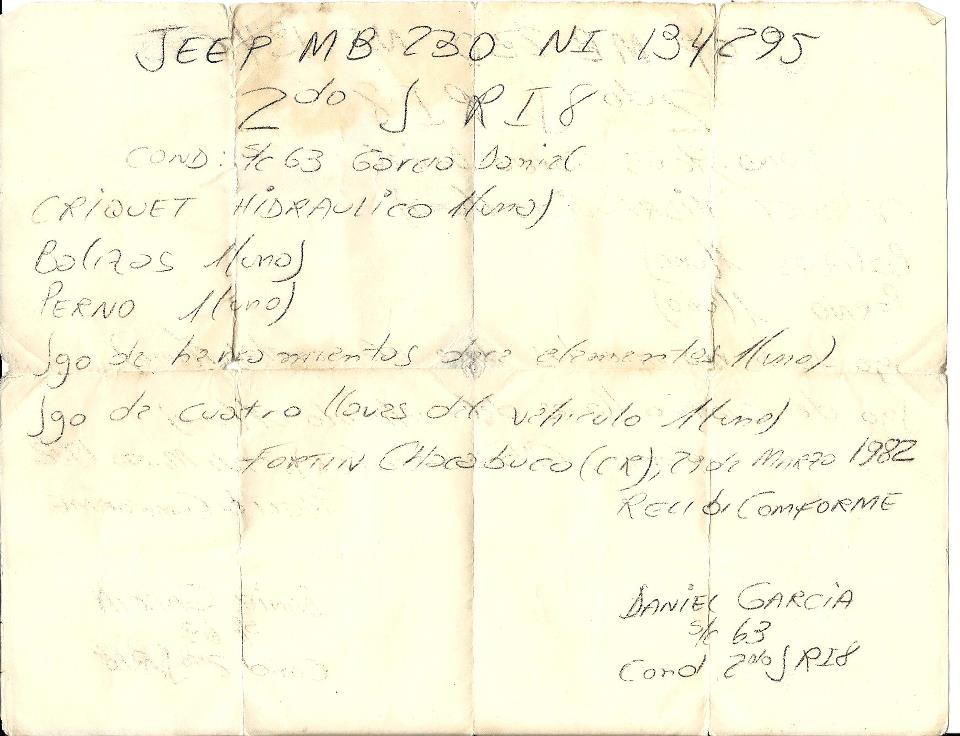 JEEP MB 230 NI 134295
2do J RI 8
COND: S/C 63 Garcia Daniel
CRIQUET HIDRAULICO 1(uno)
Balizas 1(uno)
PERNO 1(uno)
Jgo de herramientas doce elementos 1(uno)
Jgo de cuatro llaves del vehiculo 1(uno)
FORTIN CHacabuco (CR), 29 de Marzo 1982
RECIBI COMFORME
DANIEL GARCIA
S/C 63
Cond 2do J RI8